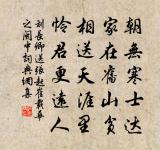 朝無寒士達
家在舊山貧
相送天涯里
憐君更遠人
劉長卿送張起崔載華
之閩中詞典網集